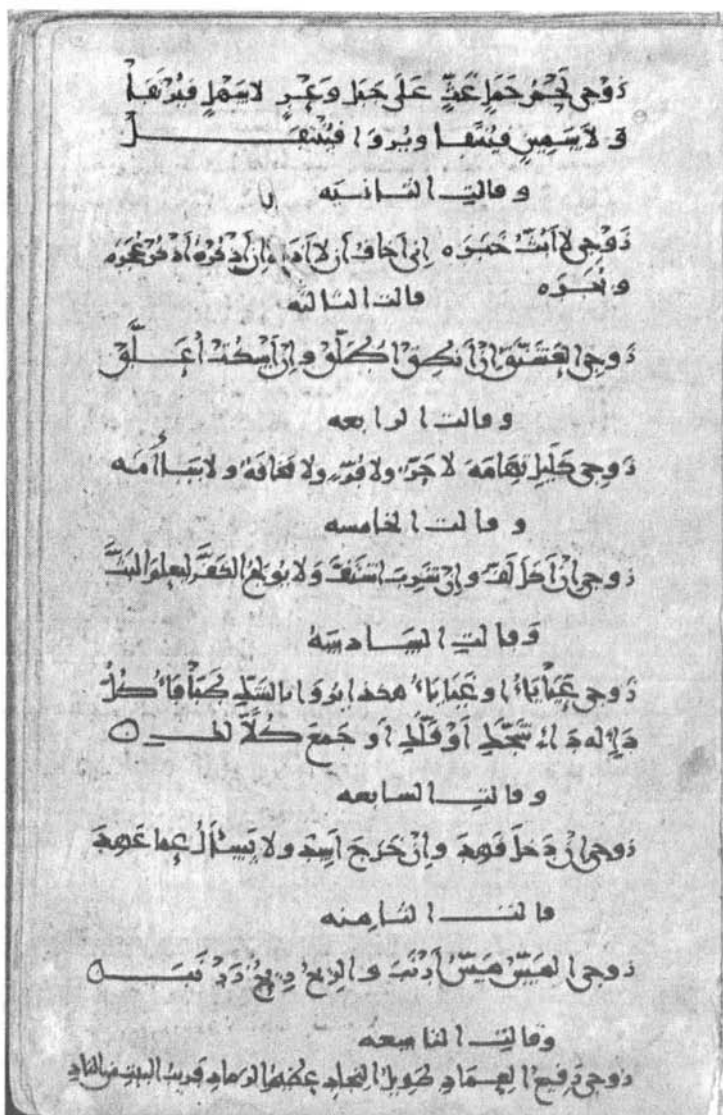 زوجي لحم جمل غث على جبل وعر لا سهل فيرتقا
ولا سمين فينتقا ويروا فينتقل
وقالت الثانيه
زوجي لا أبث خبره إني أخاف أن لا أذره إن أذكره أذكر عجره
وبجره
قالت الثالثه
زوجي العشنق إن أنطق أطلق وإن أسكت أعلق
وقالت الرابعه
زوجي كليل تهامه لا حر ولا قر ولا مخافة ولا سأامه
وقالت الخامسه
زوجي إن أكل لف وإن شرب اشتف ولا يولج الكف ليعلم البث
وقالت السادسه
زوجي غياياء او عياياء هكذا يروا بالشك طباقاء كل
داء له داء شجك أو فلك أو جمع كلا لك
وقالت السابعه
زوجي إن دخل فهد وإن خرج أسد ولا يسأل عما عهد
قالت الثامنه
زوجي المس مس أرنب والريح ريح زرنب
وقالت التاسعه
زوجي رفيع العماد طويل النجاد عظيم الرماد قريب البيت من الناد